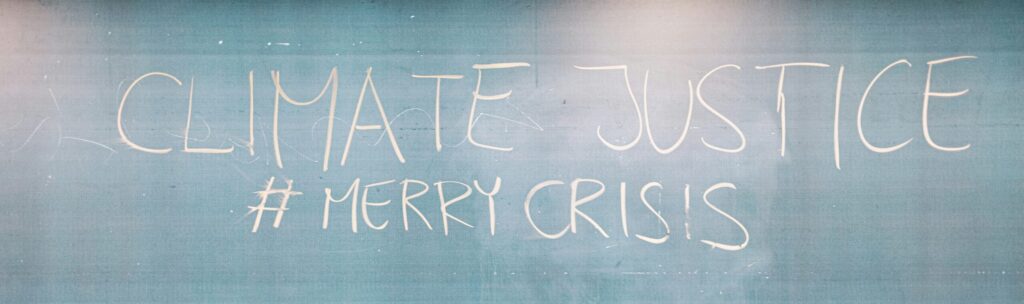 CLIMATE JUSTICE
# MERRY CRISIS